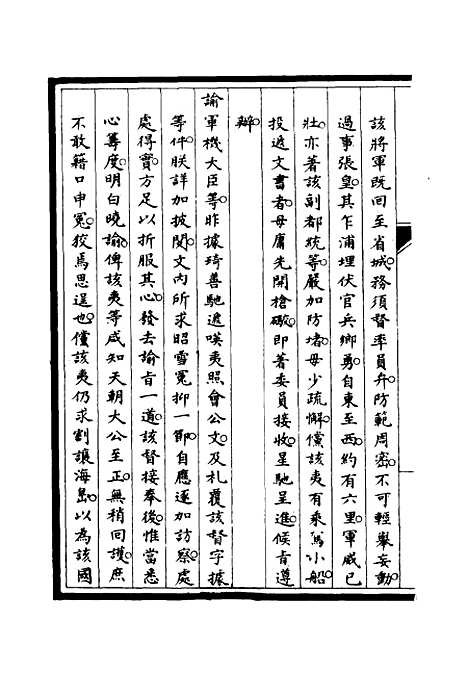 該將軍既回至省城。務須督率員弁防範周密。不可輕舉妄動
過事張皇。其乍浦埋伏官兵鄉勇。自東至西。約有六里。軍威已
壯。亦著該副都統等。嚴加防堵。毋少疏懈。儻該夷有乘駕小船
投遞文書者。毋庸先開槍礮。即著委員接收。星馳呈進。候旨遵
辦。
諭軍機大臣等。昨據琦善馳遞嘆夷照會公文。及札覆該督字據
等件。朕詳加披閱。文內所求昭雪冤抑一節。自應逐加訪察。處
處得實。方足以折服其心。發去諭旨一道。該督接奉後。惟當悉
心籌度。明白曉諭。俾該夷等咸知天朝大公至正。無稍回護。庶
不敢藉口申冤。狡焉思逞也。儻該夷仍求割讓海島。以為該國